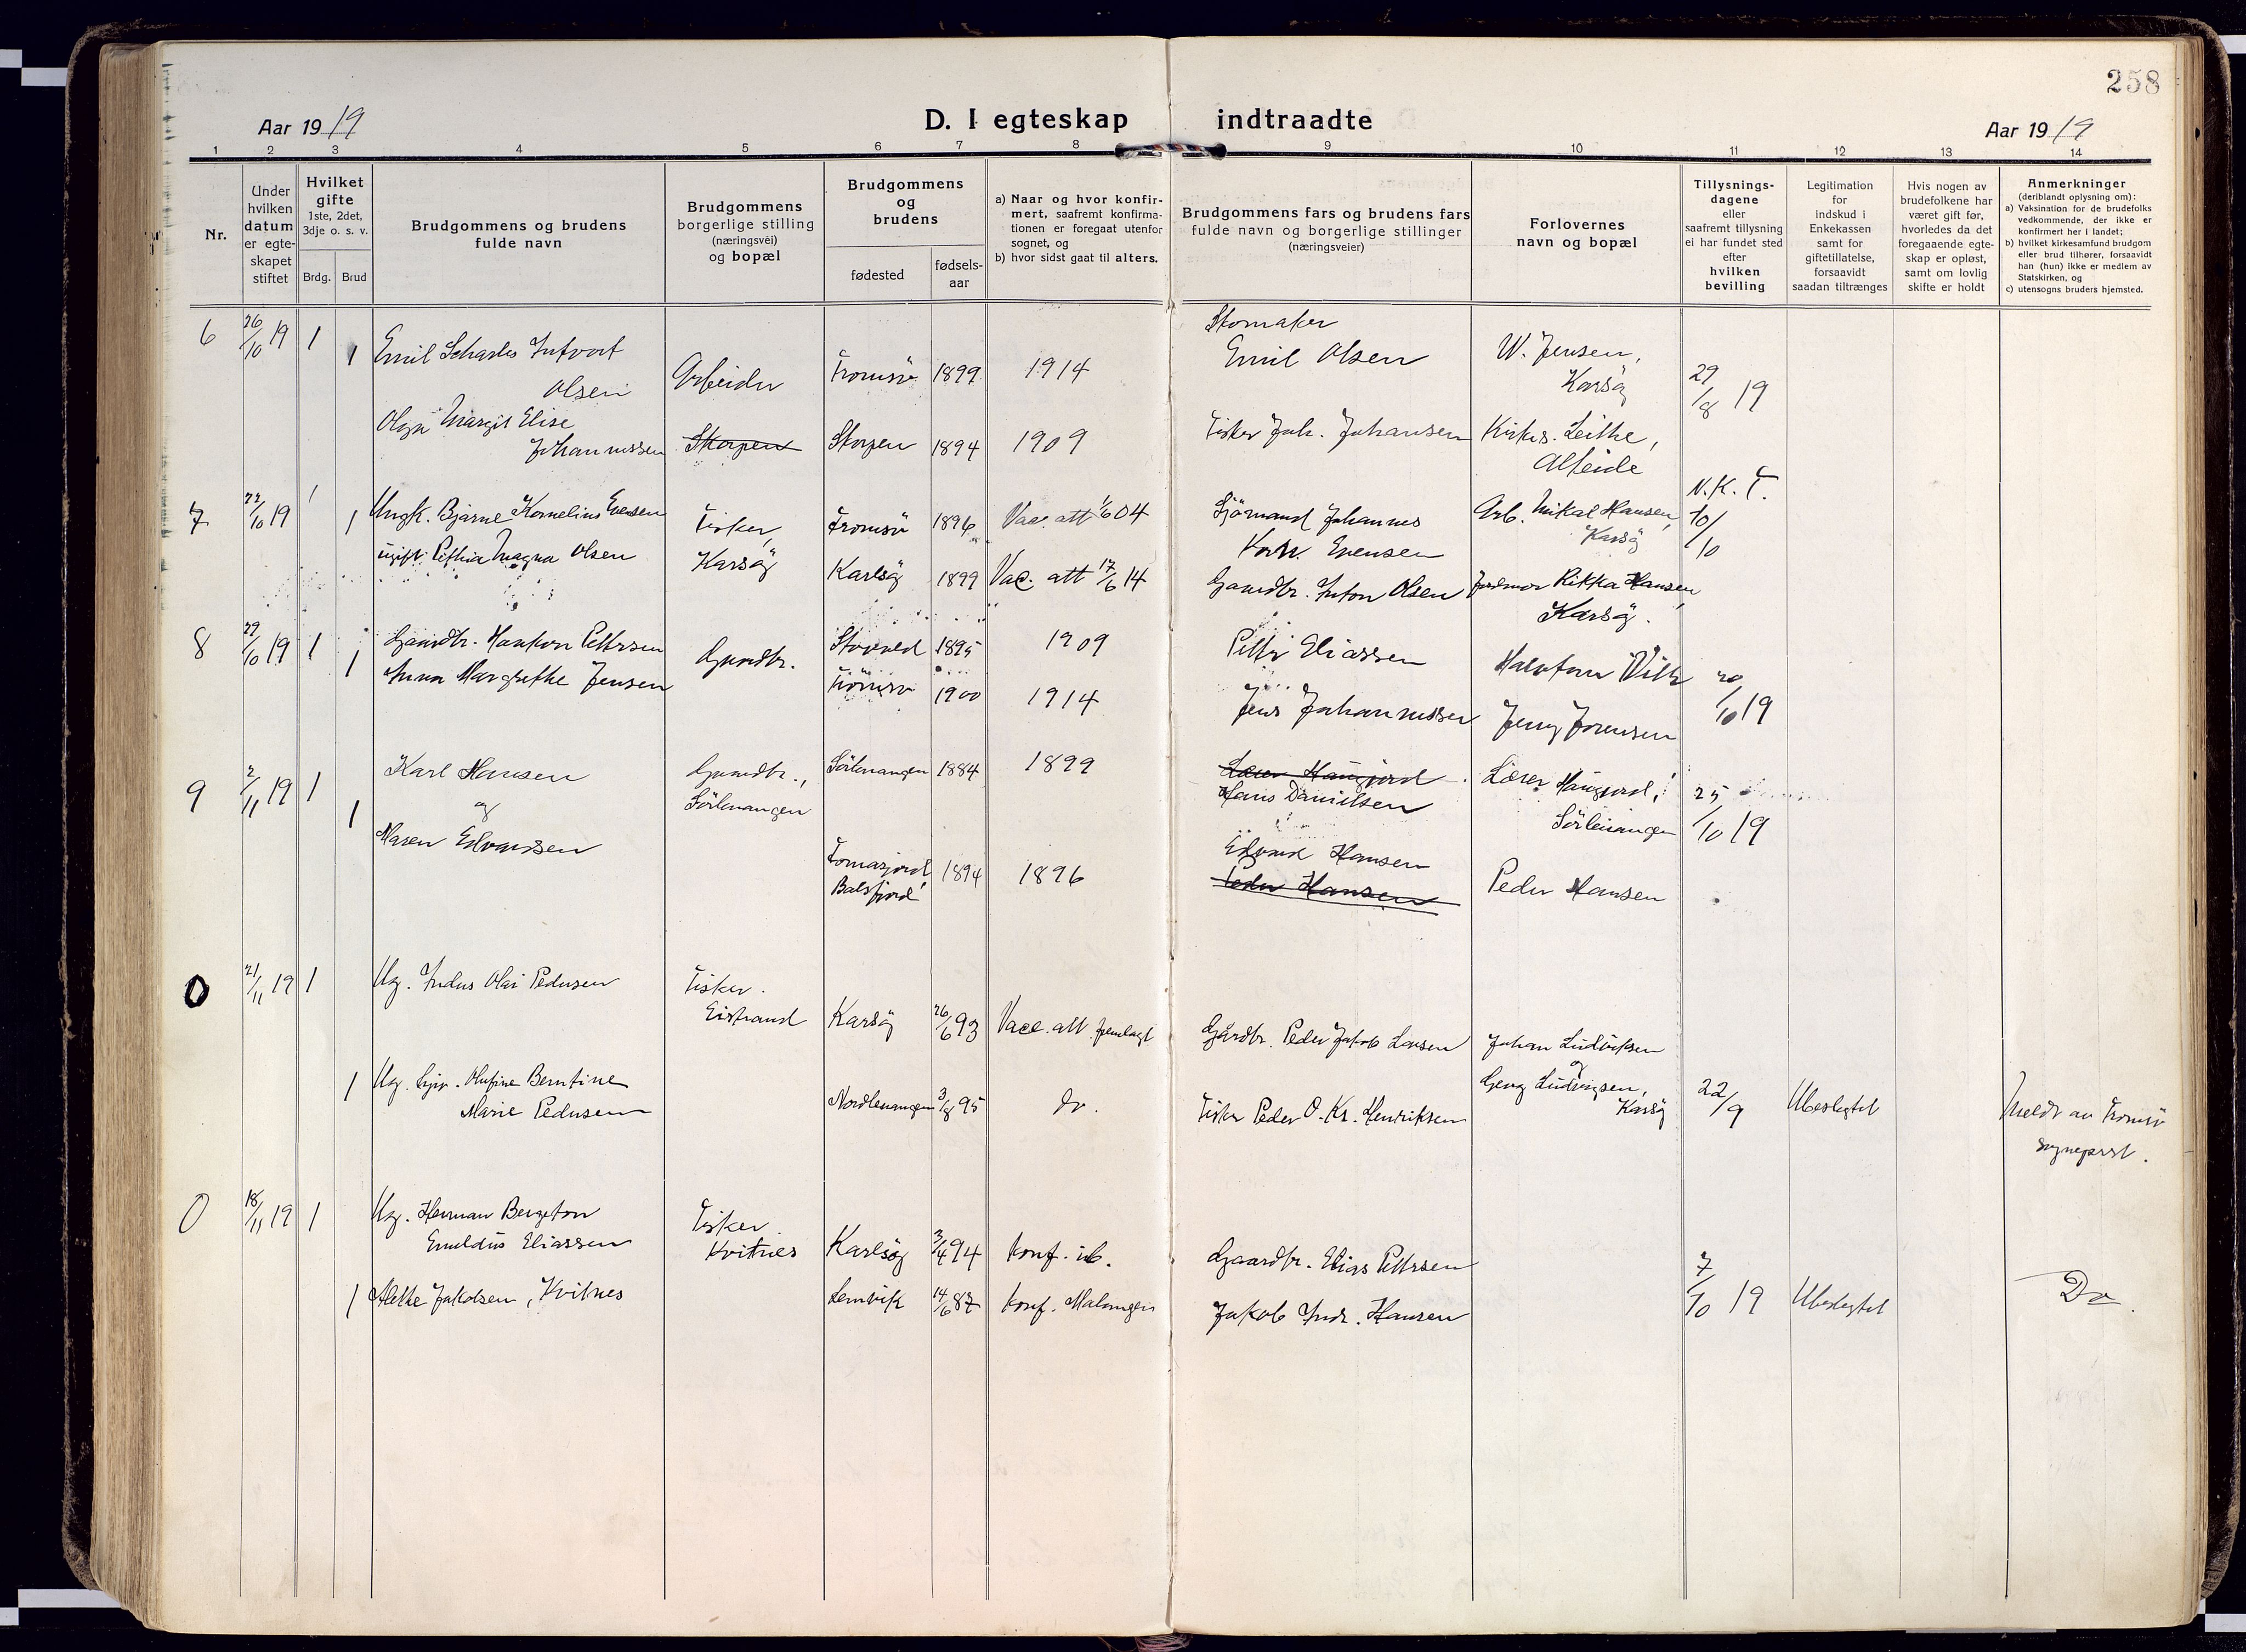 258
Aar 1919
D. I egteskap indtraadte
Aar 1919
1 2 3 4 5 6 7 8 9 10 11 12 13 14
Nr.
Under hvilken datum er egteskapet stiftet
Hvilket gifte 1ste, 2det, 3dje o. s. v.
Brdg. Brud
Brudgommens og brudens fulde navn
Brudgommens borgerlige stilling (næringsvei) og bopæl
Brudgommens og brudens
fødested
fødsels-aar
a) Naar og hvor konfir-
mert, saafremt konfirma-
tionen er foregaat utenfor
sognet, og
b) hvor sidst gaat til alters.
Brudgommens fars og brudens fars
fulde navn og borgerlige stillinger
(næringsveier)
Forlovernes
navn og bopæl
Tillysnings-
dagene
eller
saafremt tillysning
ei har fundet sted
efter
hvilken
bevilling
Legitimation
for
indskud i
Enkekassen
samt for
giftetillatelse,
forsaavidt
saadan tiltrænges
Hvis nogen av
brudefolkene har
været gift før,
hvorledes da det
foregaaende egte-
skap er opløst,
samt om lovlig
skifte er holdt
Anmerkninger
(deriblandt oplysning om):
a) Vaksination for de brudefolks
vedkommende, der ikke er
konfirmert her i landet;
b) hvilket kirkesamfund brudgom
eller brud tilhører, forsaavidt
han (hun) ikke er medlem av
Statskirken, og
c) utensogns bruders hjemsted.
6 26/10 19 1 1 Emil Scharles
Olsen Arbeider Tromsø 1899 1914 Skomaker
Emil Olsen W. Jensen,
Karsöy 29/8 19
Olga Margit Elise
Johannessen Skorpen Skorpen 1894 1909 Fisker Joh. Johansen Kirkes. Leithe,
Alteide
7 22/10 19 1 1 Ungk. Bjarne Kornelius Evensen Fisker, Tromsö 1896 Vac. att 1/6 04 Sjömand Johannes
Evensen Arb. Mikal Hansen,
Karsöy N. K. T.
10/10
ugift Magna Olsen Karsöy Karlsöy 1899 Vac. att 17/6 14 Gaardbr. Anton Olsen Jordmor Rikka Hansen,
Karsöy.
8 29/10 19 1 1 Gaardbr. Haakon Pettersen Gaardbr. 1895 1909 Petter Eliassen 20/10 19
Anna Margrethe Jensen Tromsø 1900 1914 Jens Johannessen Jenny Jörensen
9 2/11 19 1 1 Karl Hansen Gaardbr., Sörlenangen Sörlenangen 1884 1899 Lærer Haugjord
Hans Danielsen Lærer Haugjord,
Sörlenangen 25/10 19
og
Maren Edvardsen Tomasjord
Balsfjord 1894 1896 Edvard Hansen
Peder Hansen Peder Hansen
0 21/11 19 1 Ug. Andus Olai Pedersen Fisker.
Eistrand Karsöy 26/6 93 Vacc. att. fremlagt Gårdbr. Peder Jakob Larsen Johan Ludviksen
og
1 Ug. Olufine Berntine
Marie Pedersen Nordlenangen 3/8 95 Do. Fisker Peder O. Kr. Henriksen Georg Ludvigsen,
Karsöy 22/9 Ubeslegtet Meldt av Tromsö
sogneprest.
0 18/11 19 1 Ug. Herman Bergeton
Emeldus Eliassen Fisker
Kvitnes Karlsöy 3/4 94 konf. ib. Gaardbr. Elias Pettersen
1 Alette Jakobsen, Kvitnes Lenvik 14/6 87 konf. Malangen Jakob Andr. Hansen 7/10 19 Ubeslegtet Do.